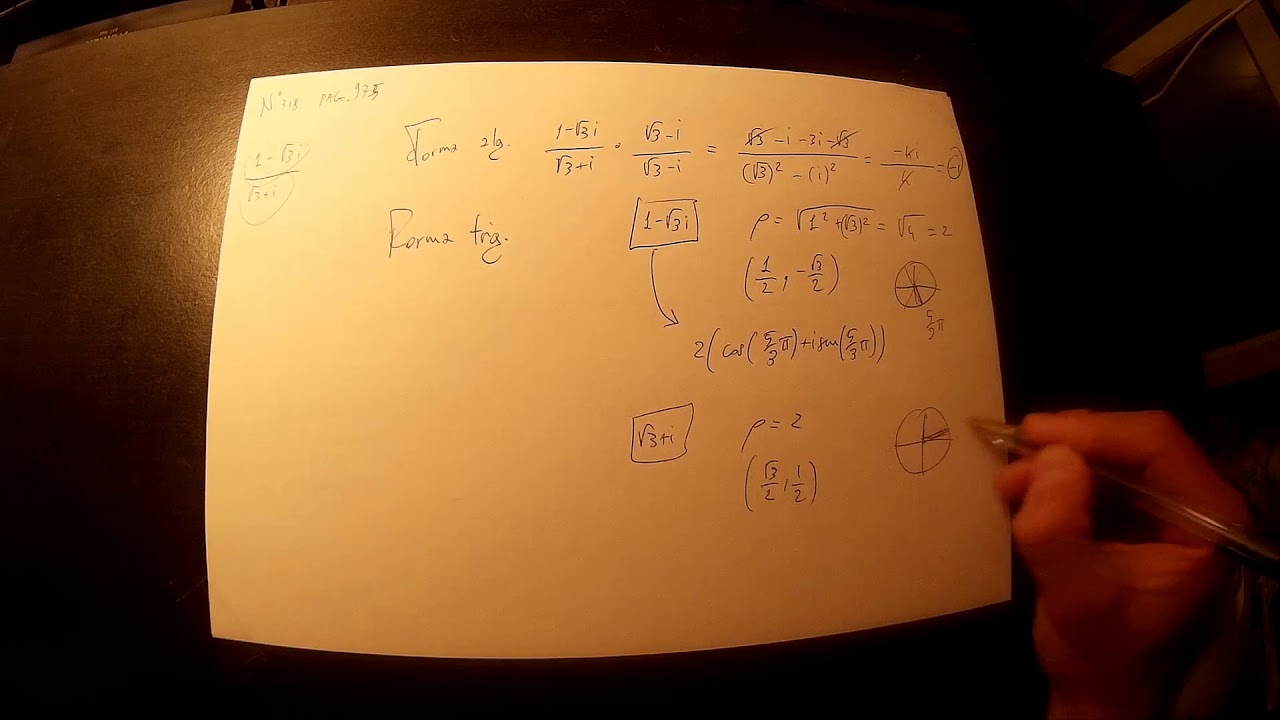 N° 318 PAG. 975
(1-√3i)/(√3+i)
Forma alg. (1-√3i)/(√3+i) · (√3-i)/(√3-i) = (√3 -i -3i -√3)/((√3)² - (i)²) = -4i/4 = -i
Forma trig. 1-√3i ρ = √(1² + (√3)²) = √4 = 2
(1/2, -√3/2)
5/3 π
2(cos(5/3 π)+i sin(5/3 π))
√3+i ρ = 2
(√3/2, 1/2)